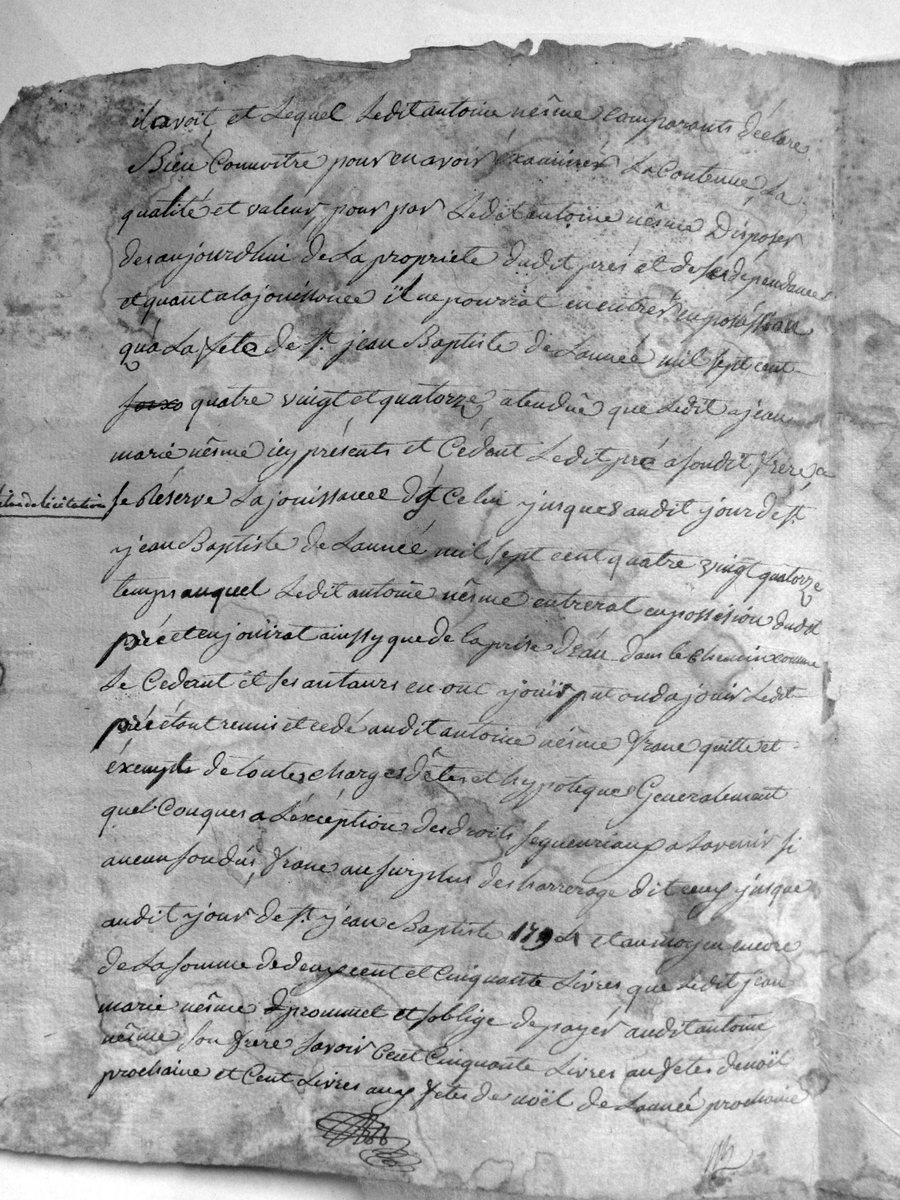 il avoit et Lequel Ledit antoine nêsme comparants déclare
Bien Connoitre pour en avoir éxaminér La Contenue, La
qualité et valeur, pour par Ledit antoine nêsme Disposer
des aujourdhui de La propriete dudit prés et de ses dépendances
et quant a la jouissance il ne pourrat en entrér en posession
qu'a La fete de St. jean Baptiste de L'année mil sept cent
quatre vingt et quatorze, atendûe que Ledit jean
marie nêsme icy présents et Cedant Ledit pré a sondit frere, a
de licitation
se Réserve La jouissance dt Celui jusques audit jour de St.
jean Baptiste de L'année mil sept cent quatre vingt quatorze
temps auquel Ledit antoine nêsme entrerat en possésion dudit
pré et en jouirat ainssy que de la prise d'éau dans le chemin comme
Le Cedant et ses autaurs en ont ajouir put ou da jouir Ledit
pré étant remis et cedé audit antoine nêsme franc quitte et
éxempt de toutes charges dêtes et hypotiques Generalement
quel Conques a L'éxcéption des droits segneuriaux a L'avenir si
aucun sondûs, franc au surplus des harrerage diceux jusque
audit jour de St. jean Baptiste 1794 et au moyen encore
de La somme de deux cent et Cinquante Livres que Ledit jean
marie nêsme prommet et soblige de payér audit antoine
nêsme son frere savoir Cent Cinquante Livres au fêtes de noël
prochaine et Cent Livres aux fêtes de noël de L'année prochaine